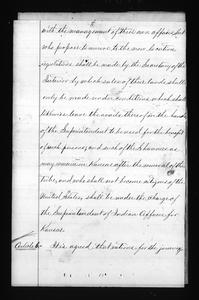 with the management of their own affairs, but
who propose to remove to the new location
regulations shall be made by the Secretary of the
Interior by which sales of their lands shall
only be made under conditions which shall
leave the funds therefor in the hands
of the Superintendent to be used for the benefit
of such persons; and such of the Shawnee as
may remain in Kansas after the removal of the
tribe, and who shall not become citizens of the
United States, shall be under the charge of
the Superintendent of Indian Affairs for
Kansas.
Article 6 It is agreed, that rations for the journey